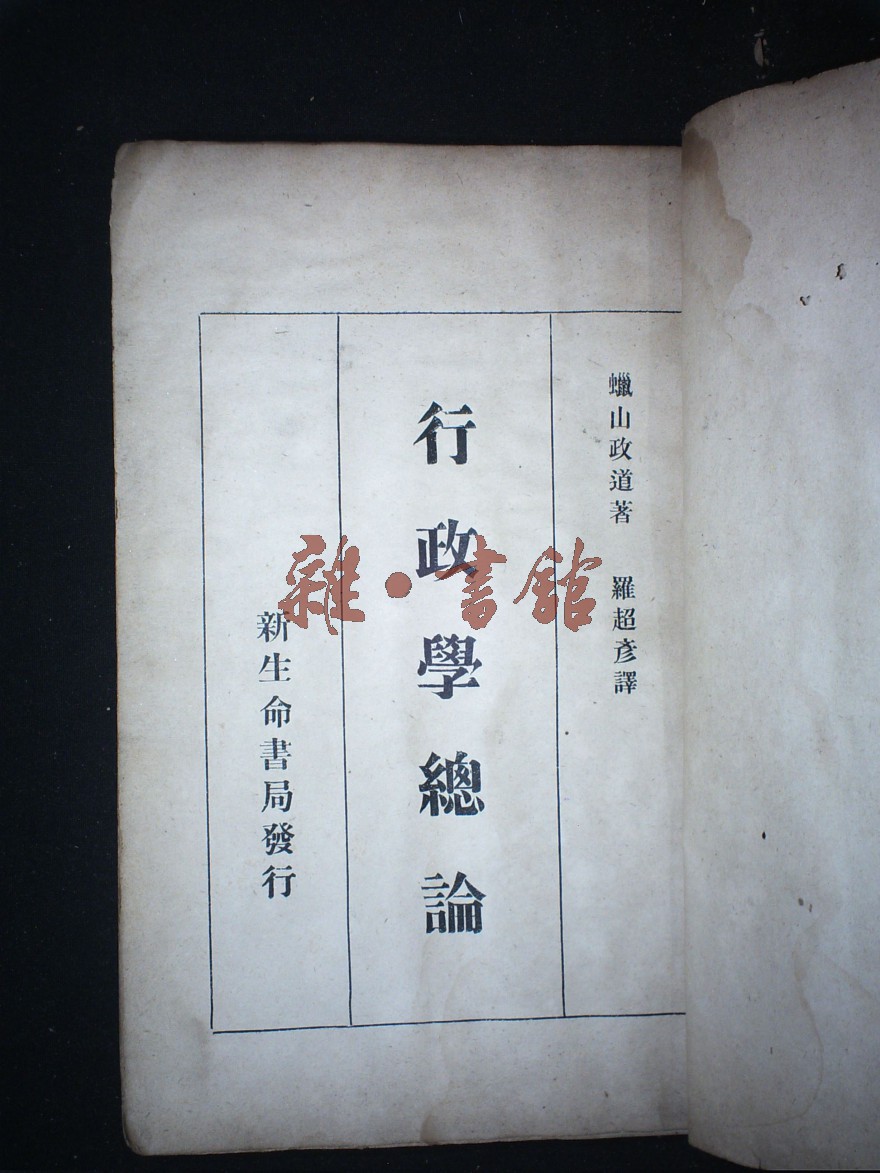 蠟山政道著　羅超彥譯
行政學總論
新生命書局發行
雜·書館